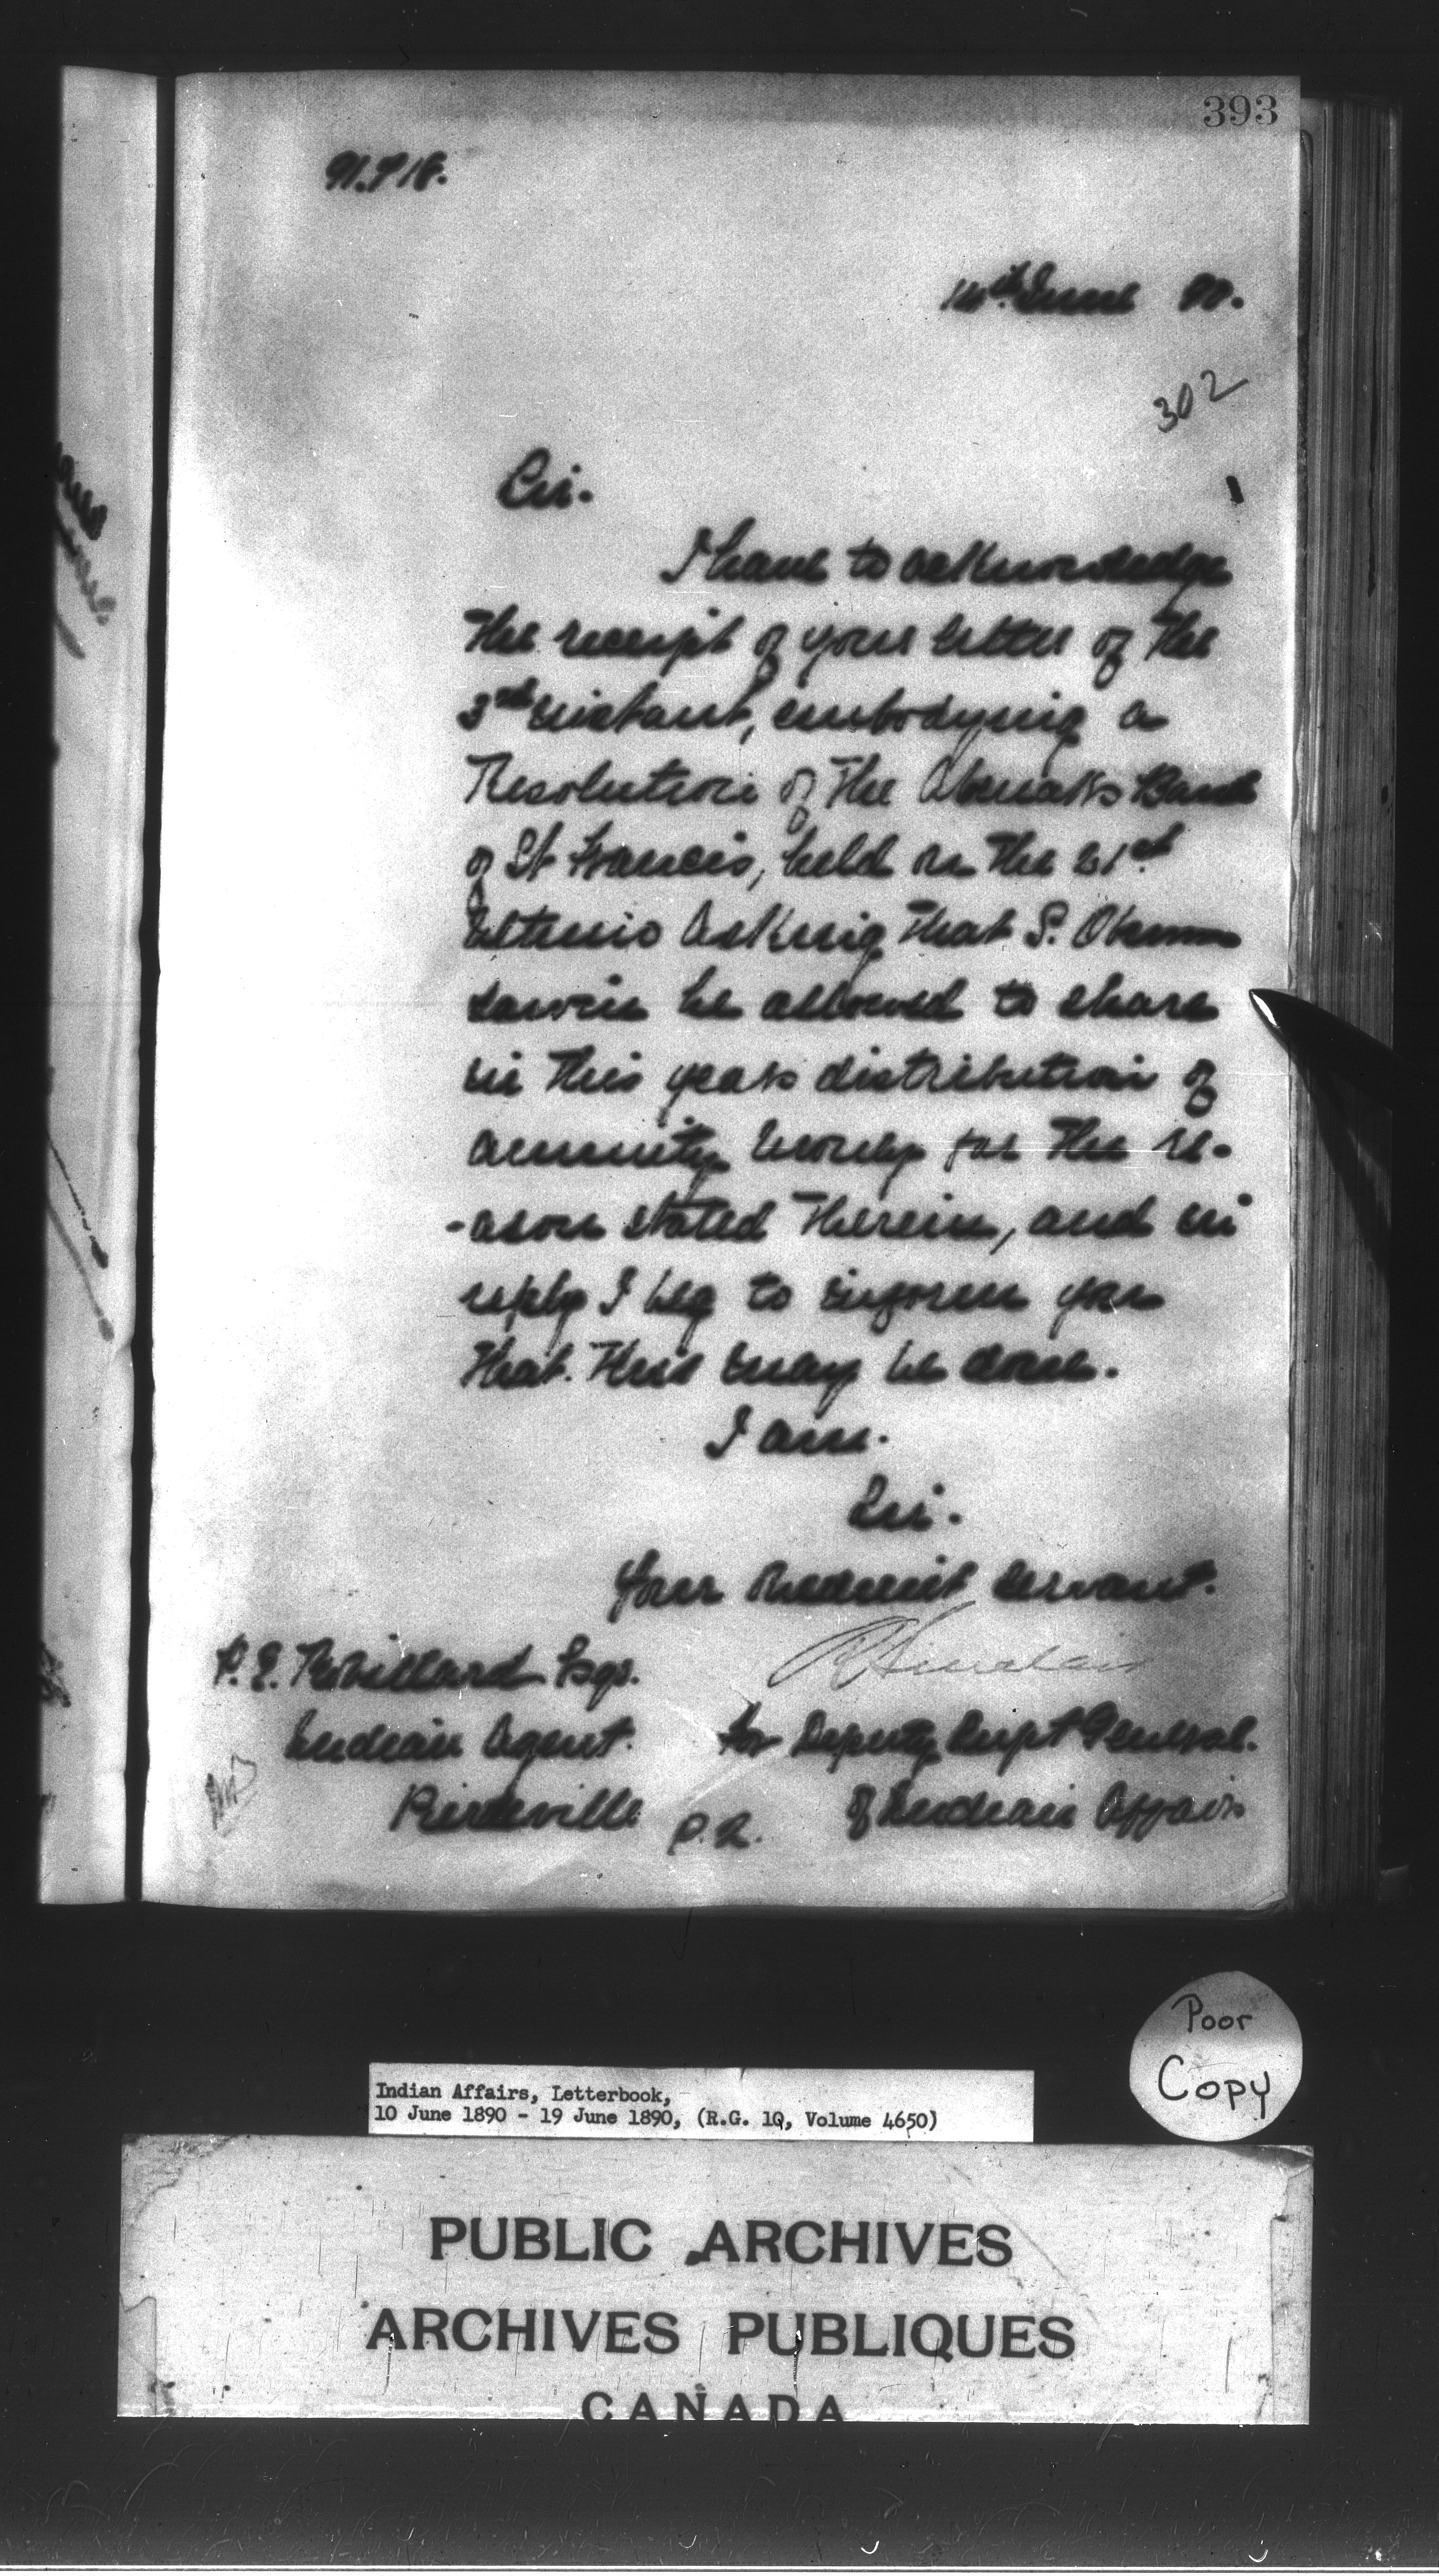 393
14th June 90.
302
Sir.
I have to acknowledge
the receipt of your letter of the
3rd instant, embodying a
Resolution of the Abenakis Band
of St Francis, held on the 21st
Ultimo asking that S.
be allowed to share
in this years distribution of
annuity money for the re-
-ason stated therein, and in
reply I beg to inform you
that this may be done.
I am.
Sir.
Your Obedient Servant.
R Sinclair
P. E. Robillard Esqr.
Indian Agent.
for Deputy Supt General.
Pierreville P.Q.
of Indian Affairs
Poor
Copy
Indian Affairs, Letterbook,
10 June 1890 - 19 June 1890, (R.G. 10, Volume 4650)
PUBLIC ARCHIVES
ARCHIVES PUBLIQUES
CANADA